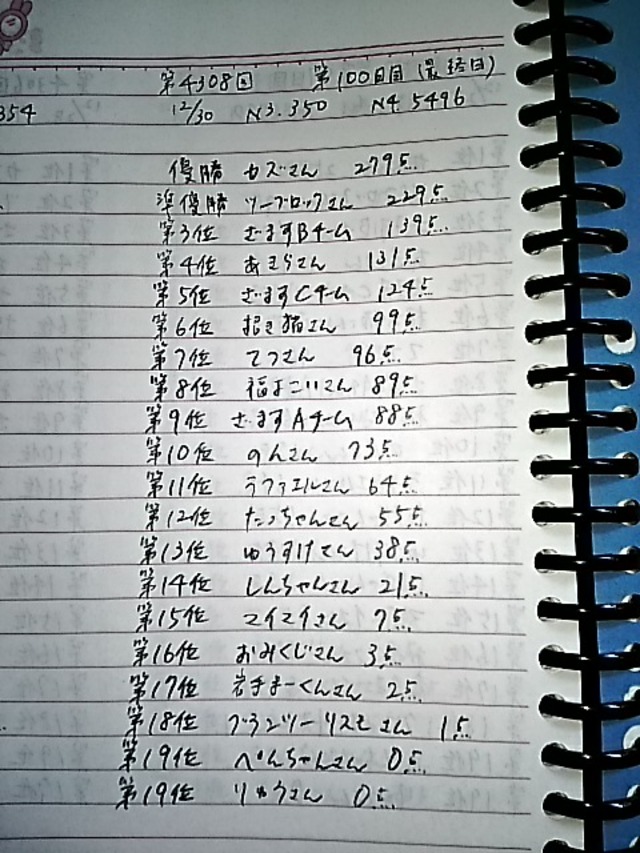 第4308回 第100日目(最終日)
354 12/30 N3.350 N4.5496
優勝 カズさん 279点
準優勝 ツーブロックさん 229点
第3位 ざますBチーム 139点
第4位 あきらさん 131点
第5位 ざますCチーム 124点
第6位 招き猫さん 99点
第7位 てつさん 96点
第8位 福よこいさん 89点
第9位 ざますAチーム 88点
第10位 のんさん 73点
第11位 ラファエルさん 64点
第12位 たっちゃんさん 55点
第13位 ゆうすけさん 38点
第14位 しんちゃんさん 21点
第15位 マイマイさん 7点
第16位 おみくじさん 3点
第17位 岩手まーくんさん 2点
第18位 さん 1点
第19位 ぺんちゃんさん 0点
第19位 りゅうさん 0点